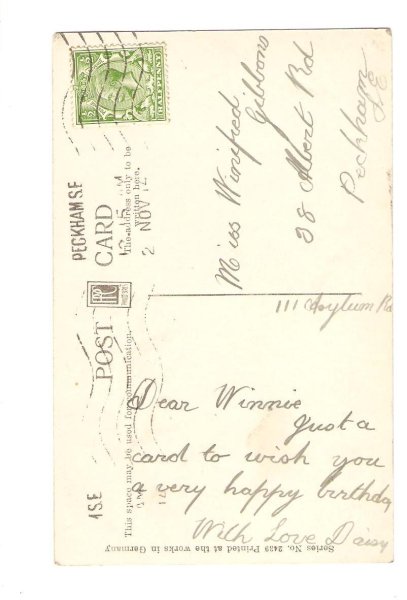 HALFPENNY
PECKHAM S.E
NOV
POST CARD
The address only to be
written here.
This space may be used for communication.
Miss Winifred
Gibbons
38 Albert Rd
Peckham
S.E
111 Asylum Rd
Dear Winnie
Just a
card to wish you
a very happy birthday
With Love Daisy
Series No. 2439 Printed at the works in Germany